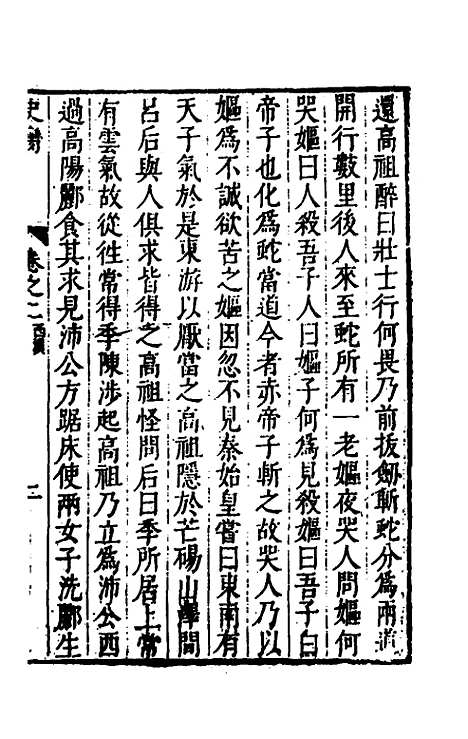 還高祖醉曰壯士行何畏乃前拔劔斬蛇分爲兩道
開行數里後人來至蛇所有一老嫗夜哭人問嫗何
哭嫗曰人殺吾子人曰嫗子何爲見殺嫗曰吾子白
帝子也化爲蛇當道今者赤帝子斬之故哭人乃以
嫗爲不誠欲苦之嫗因忽不見秦始皇嘗曰東南有
天子氣於是東游以厭當之高祖隱於芒碭山澤間
呂后與人俱求皆得之高祖怪問后曰季所居上常
有雲氣故從徃常得季陳涉起高祖乃立爲沛公西
過高陽酈食其求見沛公方踞床使兩女子洗酈生
卷之二 西漢 三